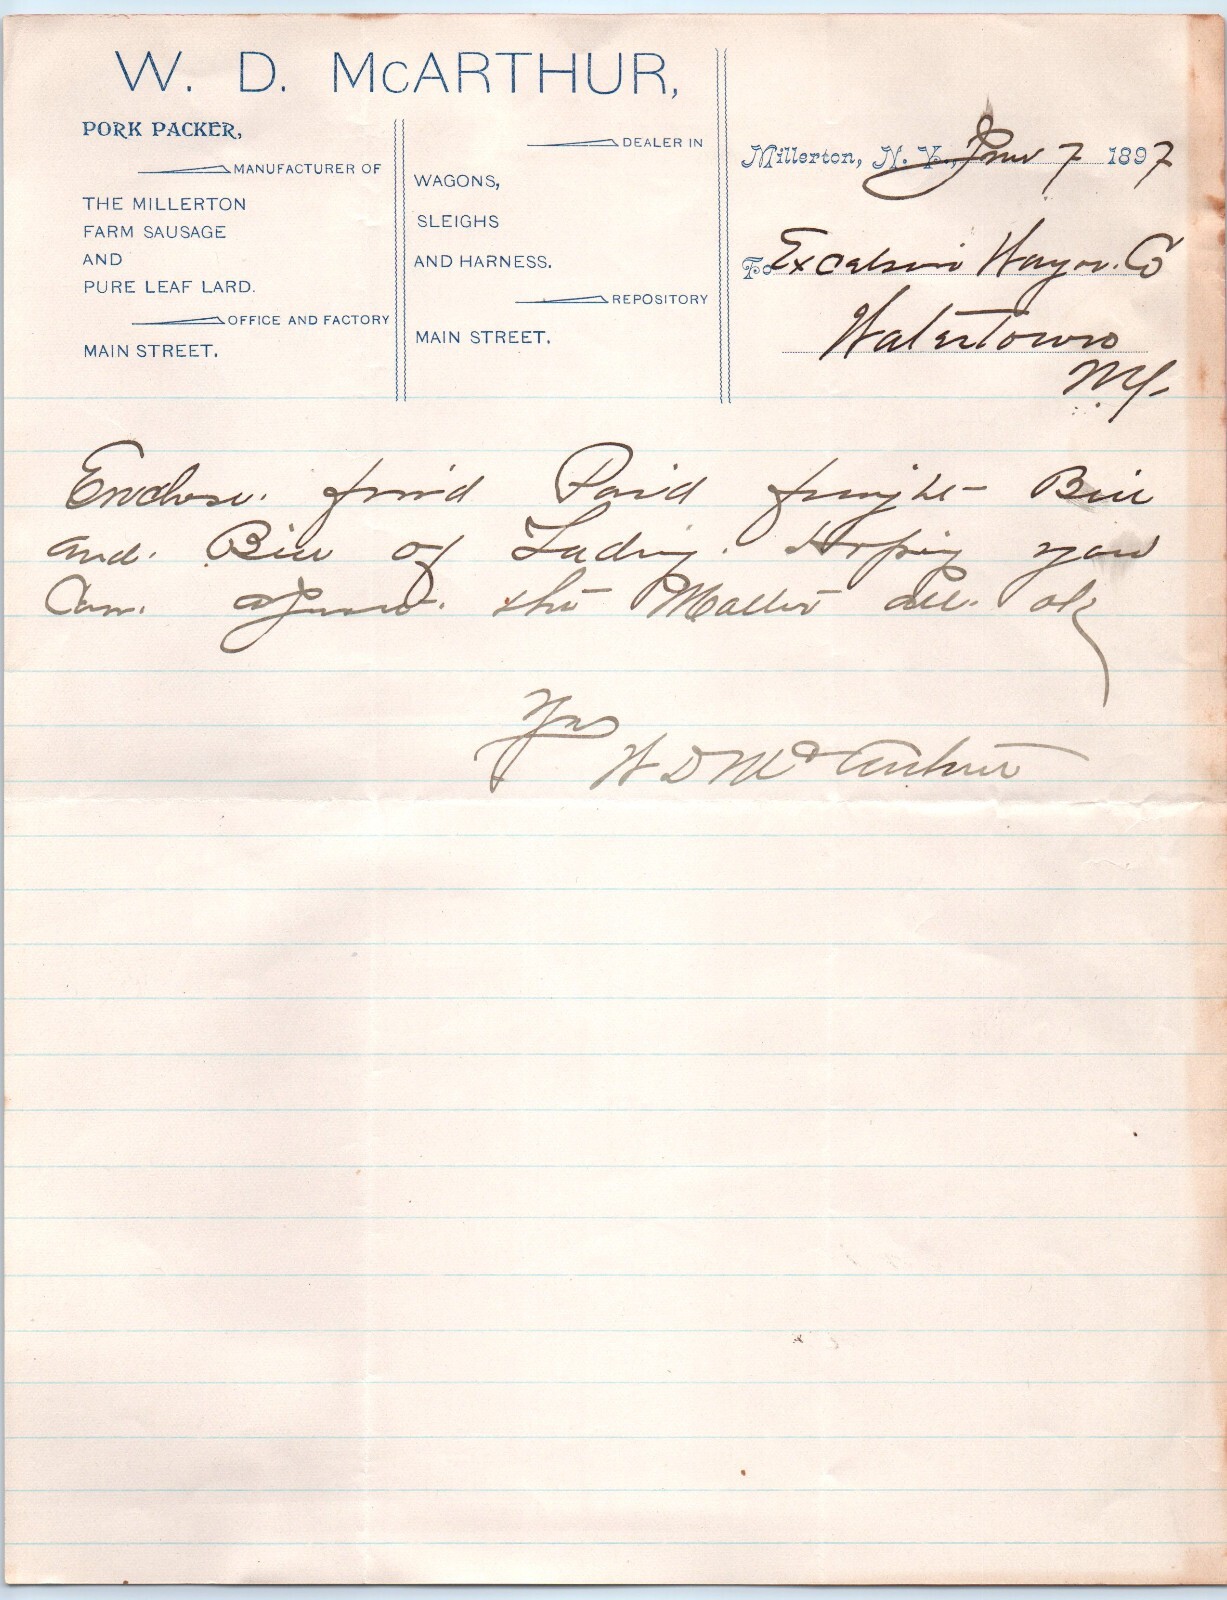 W. D. McARTHUR,
PORK PACKER,
MANUFACTURER OF
THE MILLERTON
FARM SAUSAGE
AND
PURE LEAF LARD.
OFFICE AND FACTORY
MAIN STREET.
DEALER IN
WAGONS,
SLEIGHS
AND HARNESS.
REPOSITORY
MAIN STREET.
Millerton, N. Y., 7 1897
To Excelsior Wagon Co
Watertown
NY.
Enclose. find Paid freight Bill
and. Bill of Lading. Hoping you
Can. the Matter all. ok
Yrs
W D McArthur